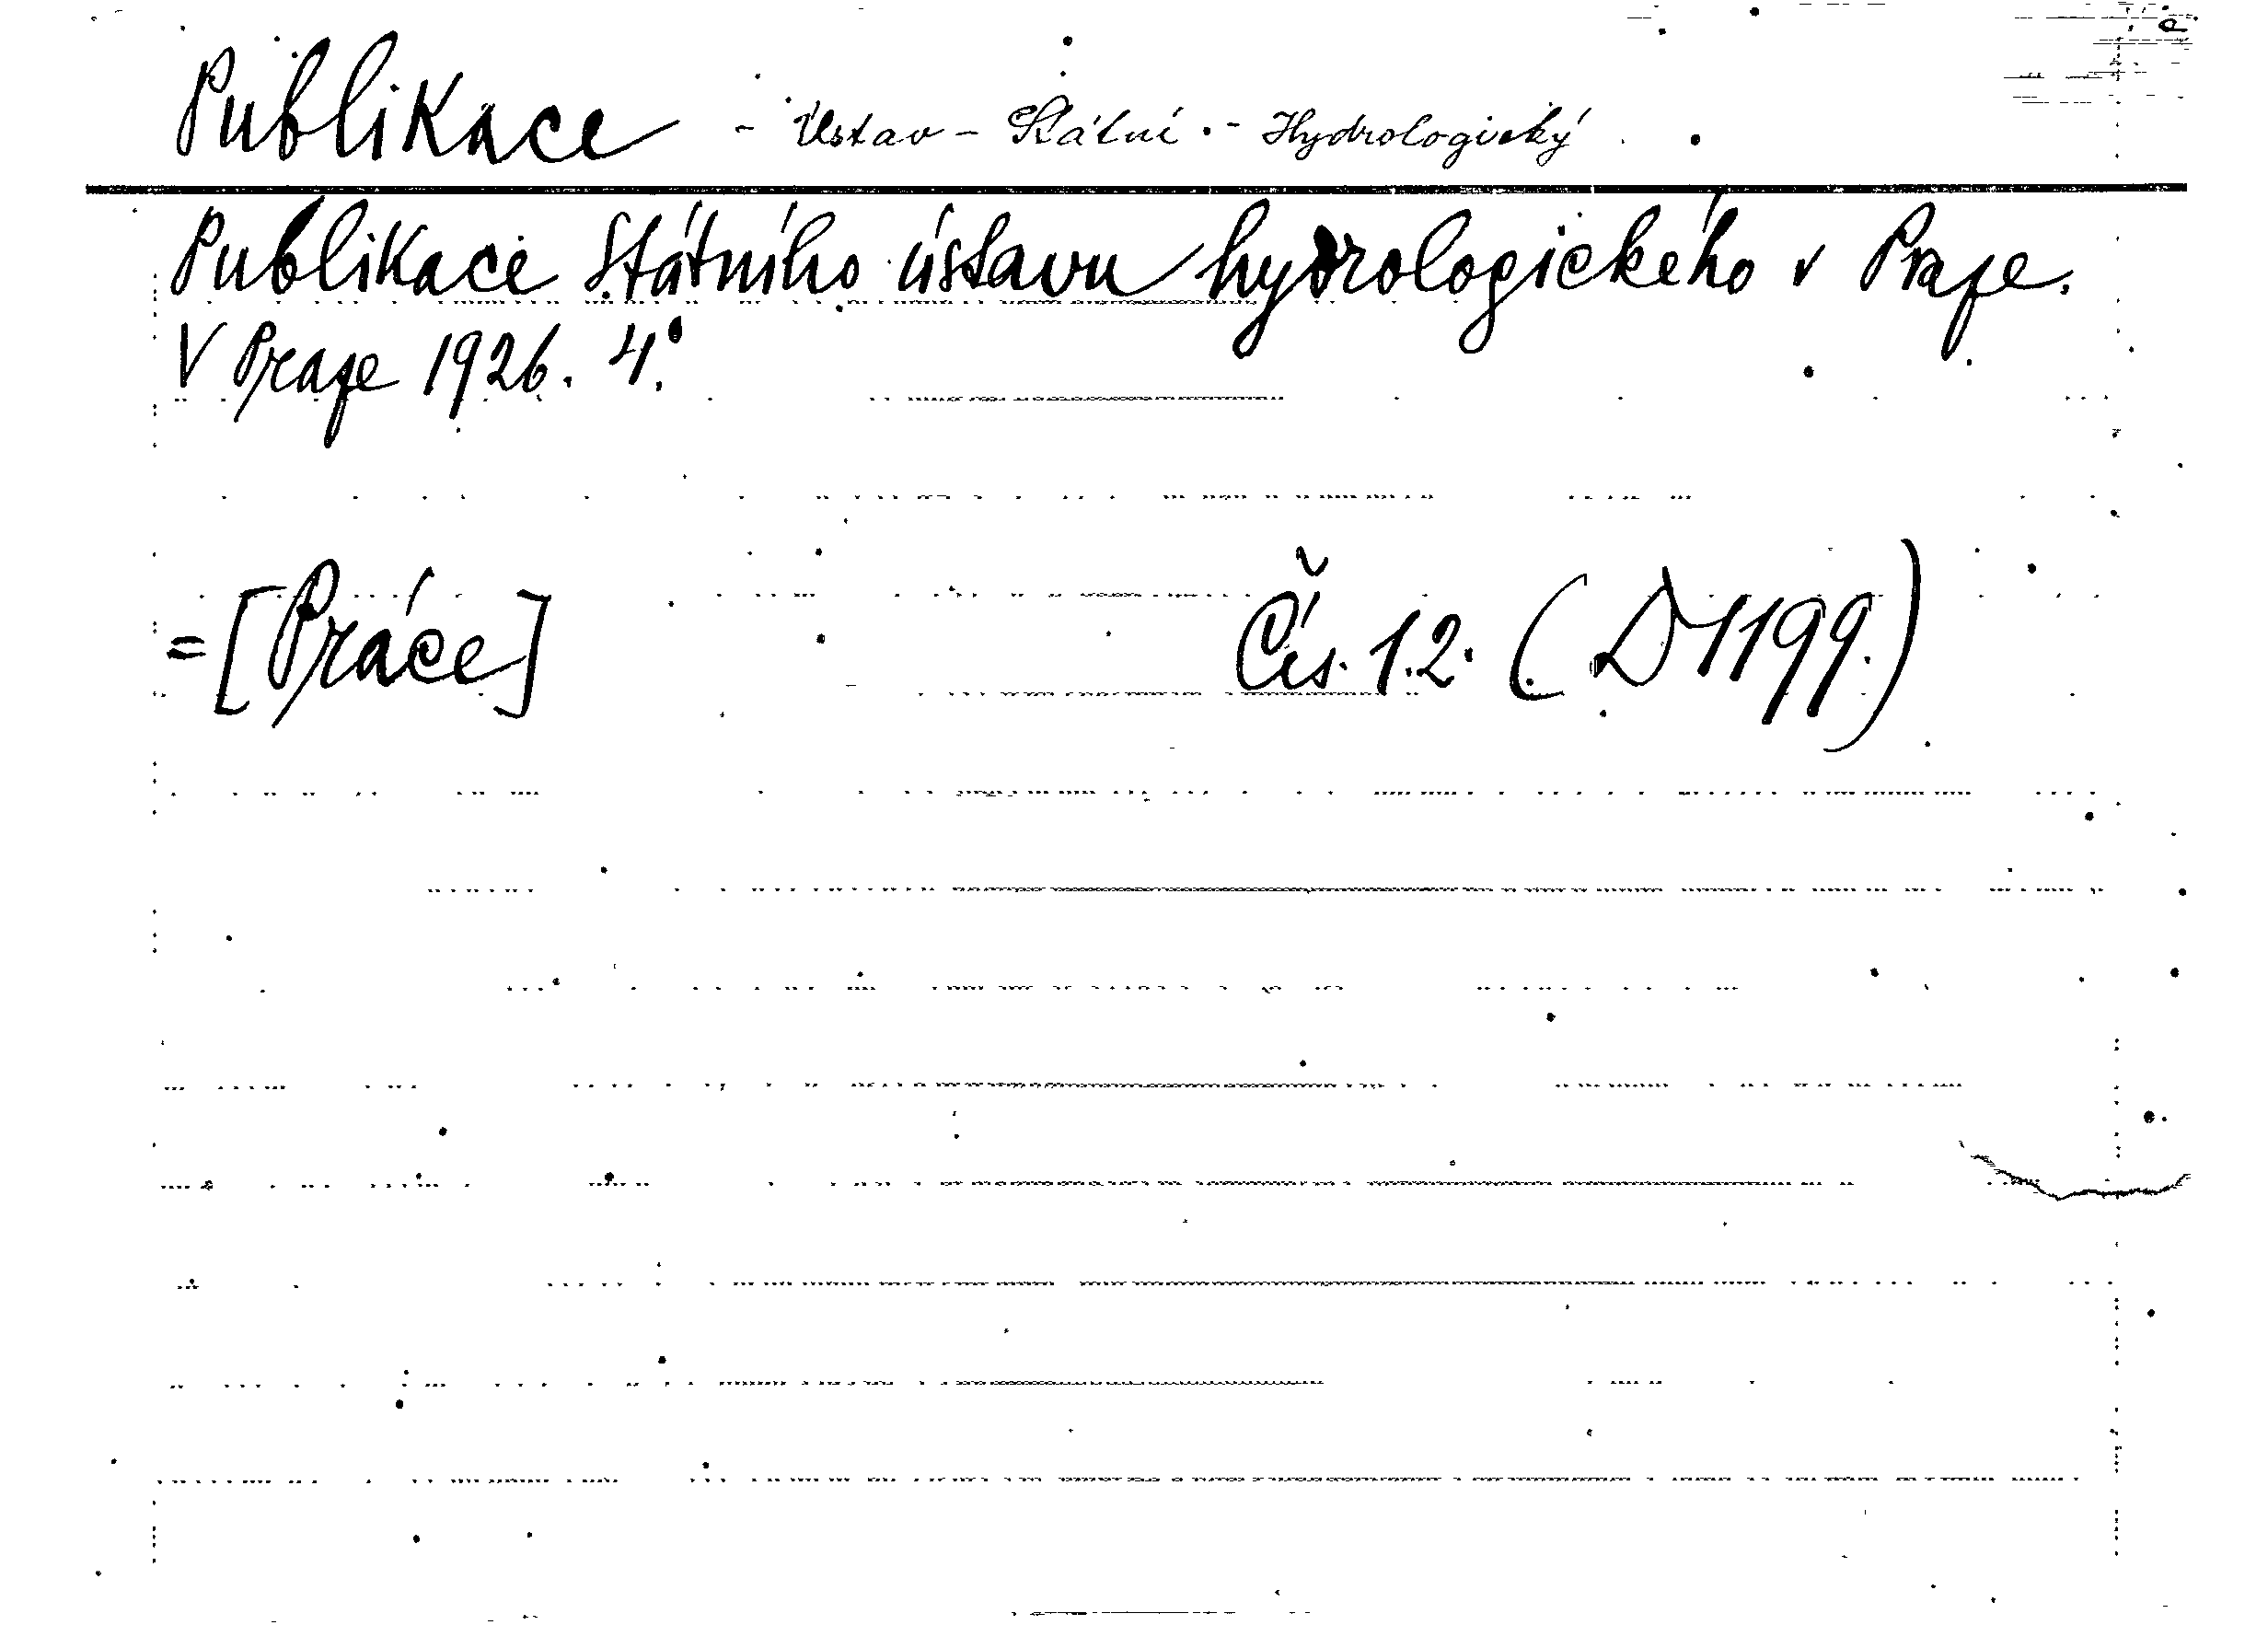 Publikace - Ústav - Státní - Hydrologický
Publikace Státního ústavu hydrologického v Praze.
V Praze 1926. 4º.
= [Práce] Čís. 1.2. (D 1199.)